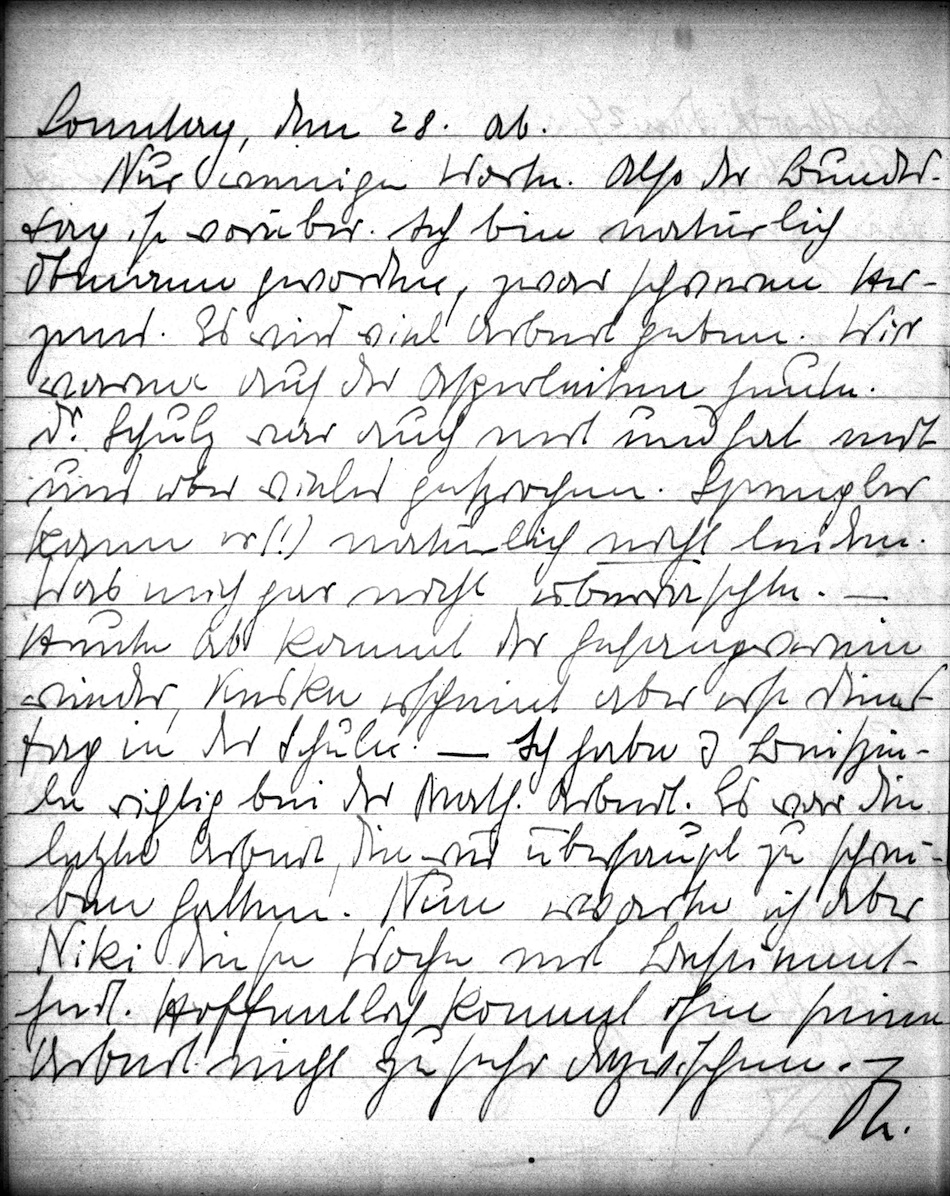 Sonntag, den 28. ab.
Nur wenige Worte. Also der Bundes-
tag ist vorüber. Ich bin natürlich
Obmann geworden, zwar schweren Her-
zens. Es wird viel Arbeit geben. Wir
waren auf der heute.
Dr. Schulz war auch mit und hat mit
uns über vieles gesprochen. Spengler
kann er(!) natürlich nicht leiden.
Was mich gar nicht überraschte. —
Heute ab kommt der Gesangverein
wieder, erscheint aber erst Diens-
tag in der Schule. — Ich habe 3 Beispie-
le richtig bei der Math. Arbeit. Es war die
letzte Arbeit, die wir überhaupt zu schrei-
ben hatten. Nun erwarte ich aber
Niki diese Woche mit Bestimmt-
heit. Hoffentlich kommt ihm seine
Arbeit nicht zu sehr dazwischen. —